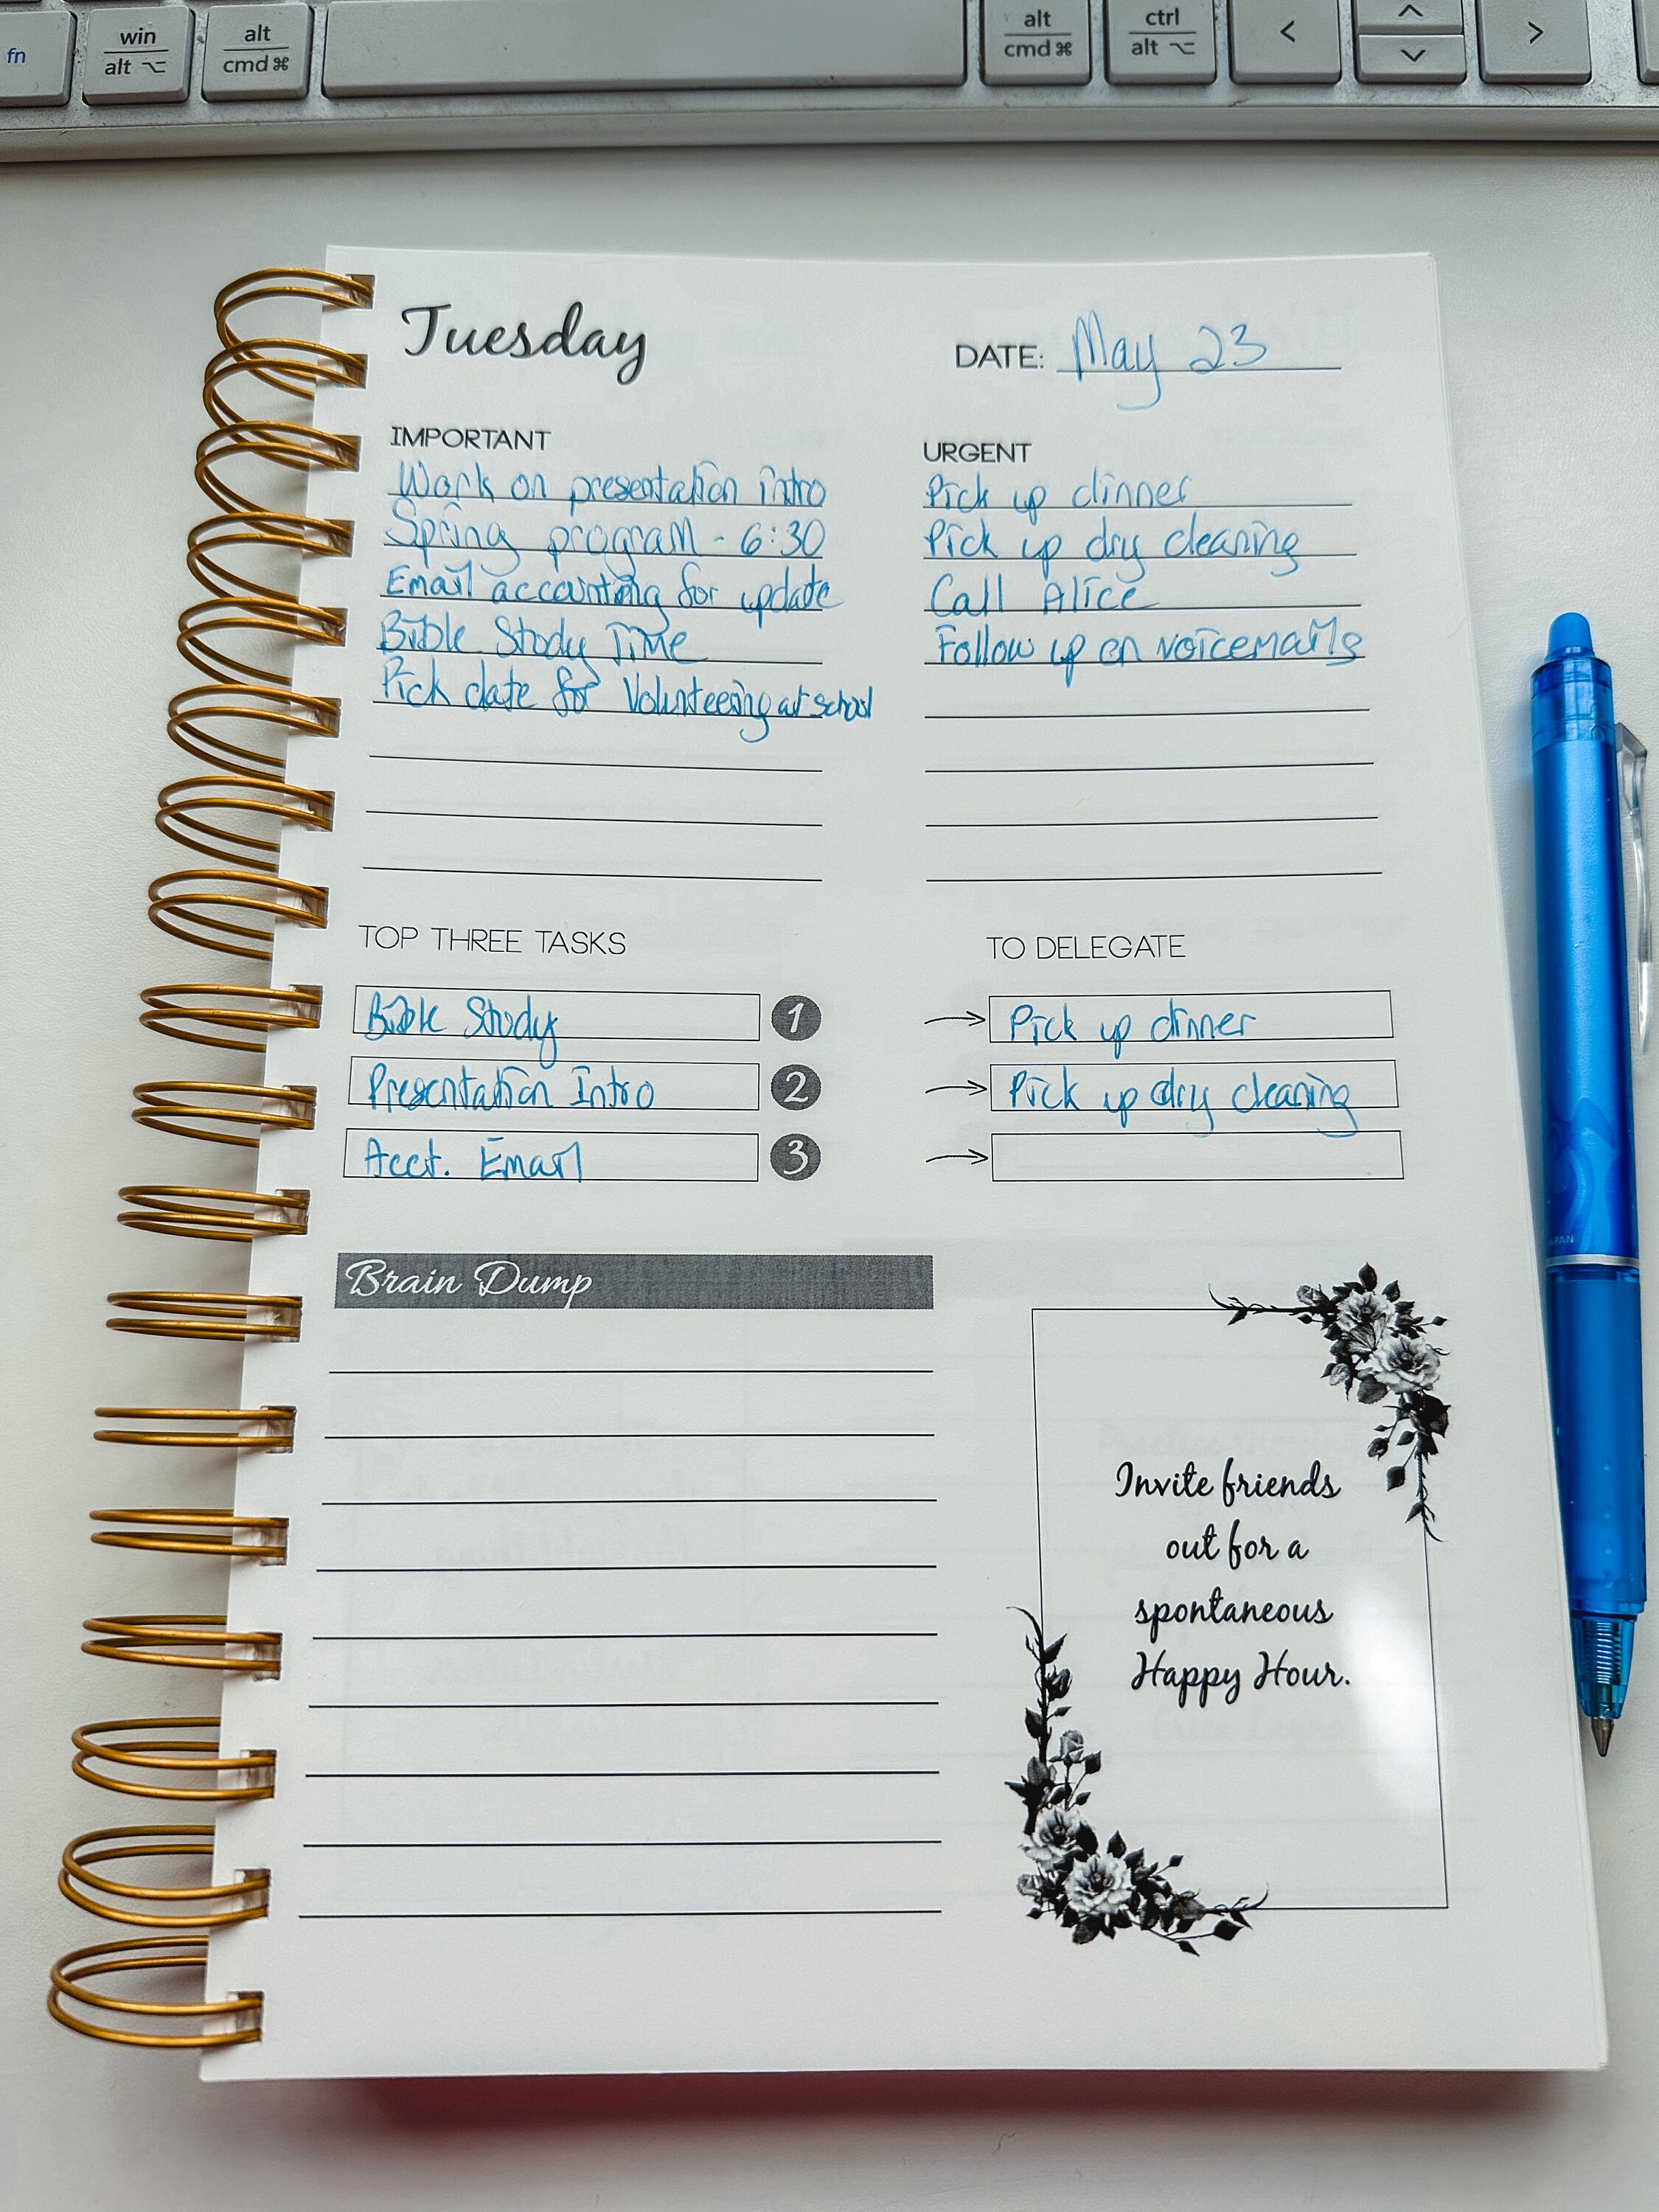 fn
win
alt ⌥
alt
cmd ⌘
alt
cmd ⌘
ctrl
alt ⌥
<
^
>
Tuesday
DATE: May 23
IMPORTANT
Work on presentation intro
Spring program - 6:30
Email accounting for update
Bible Study Time
Pick date for Volunteering at school
URGENT
Pick up dinner
Pick up dry cleaning
Call Alice
Follow up on voicemails
TOP THREE TASKS
Bible Study 1
Presentation Intro 2
Acct. Email 3
TO DELEGATE
→ Pick up dinner
→ Pick up dry cleaning
→
Brain Dump
Invite friends
out for a
spontaneous
Happy Hour.